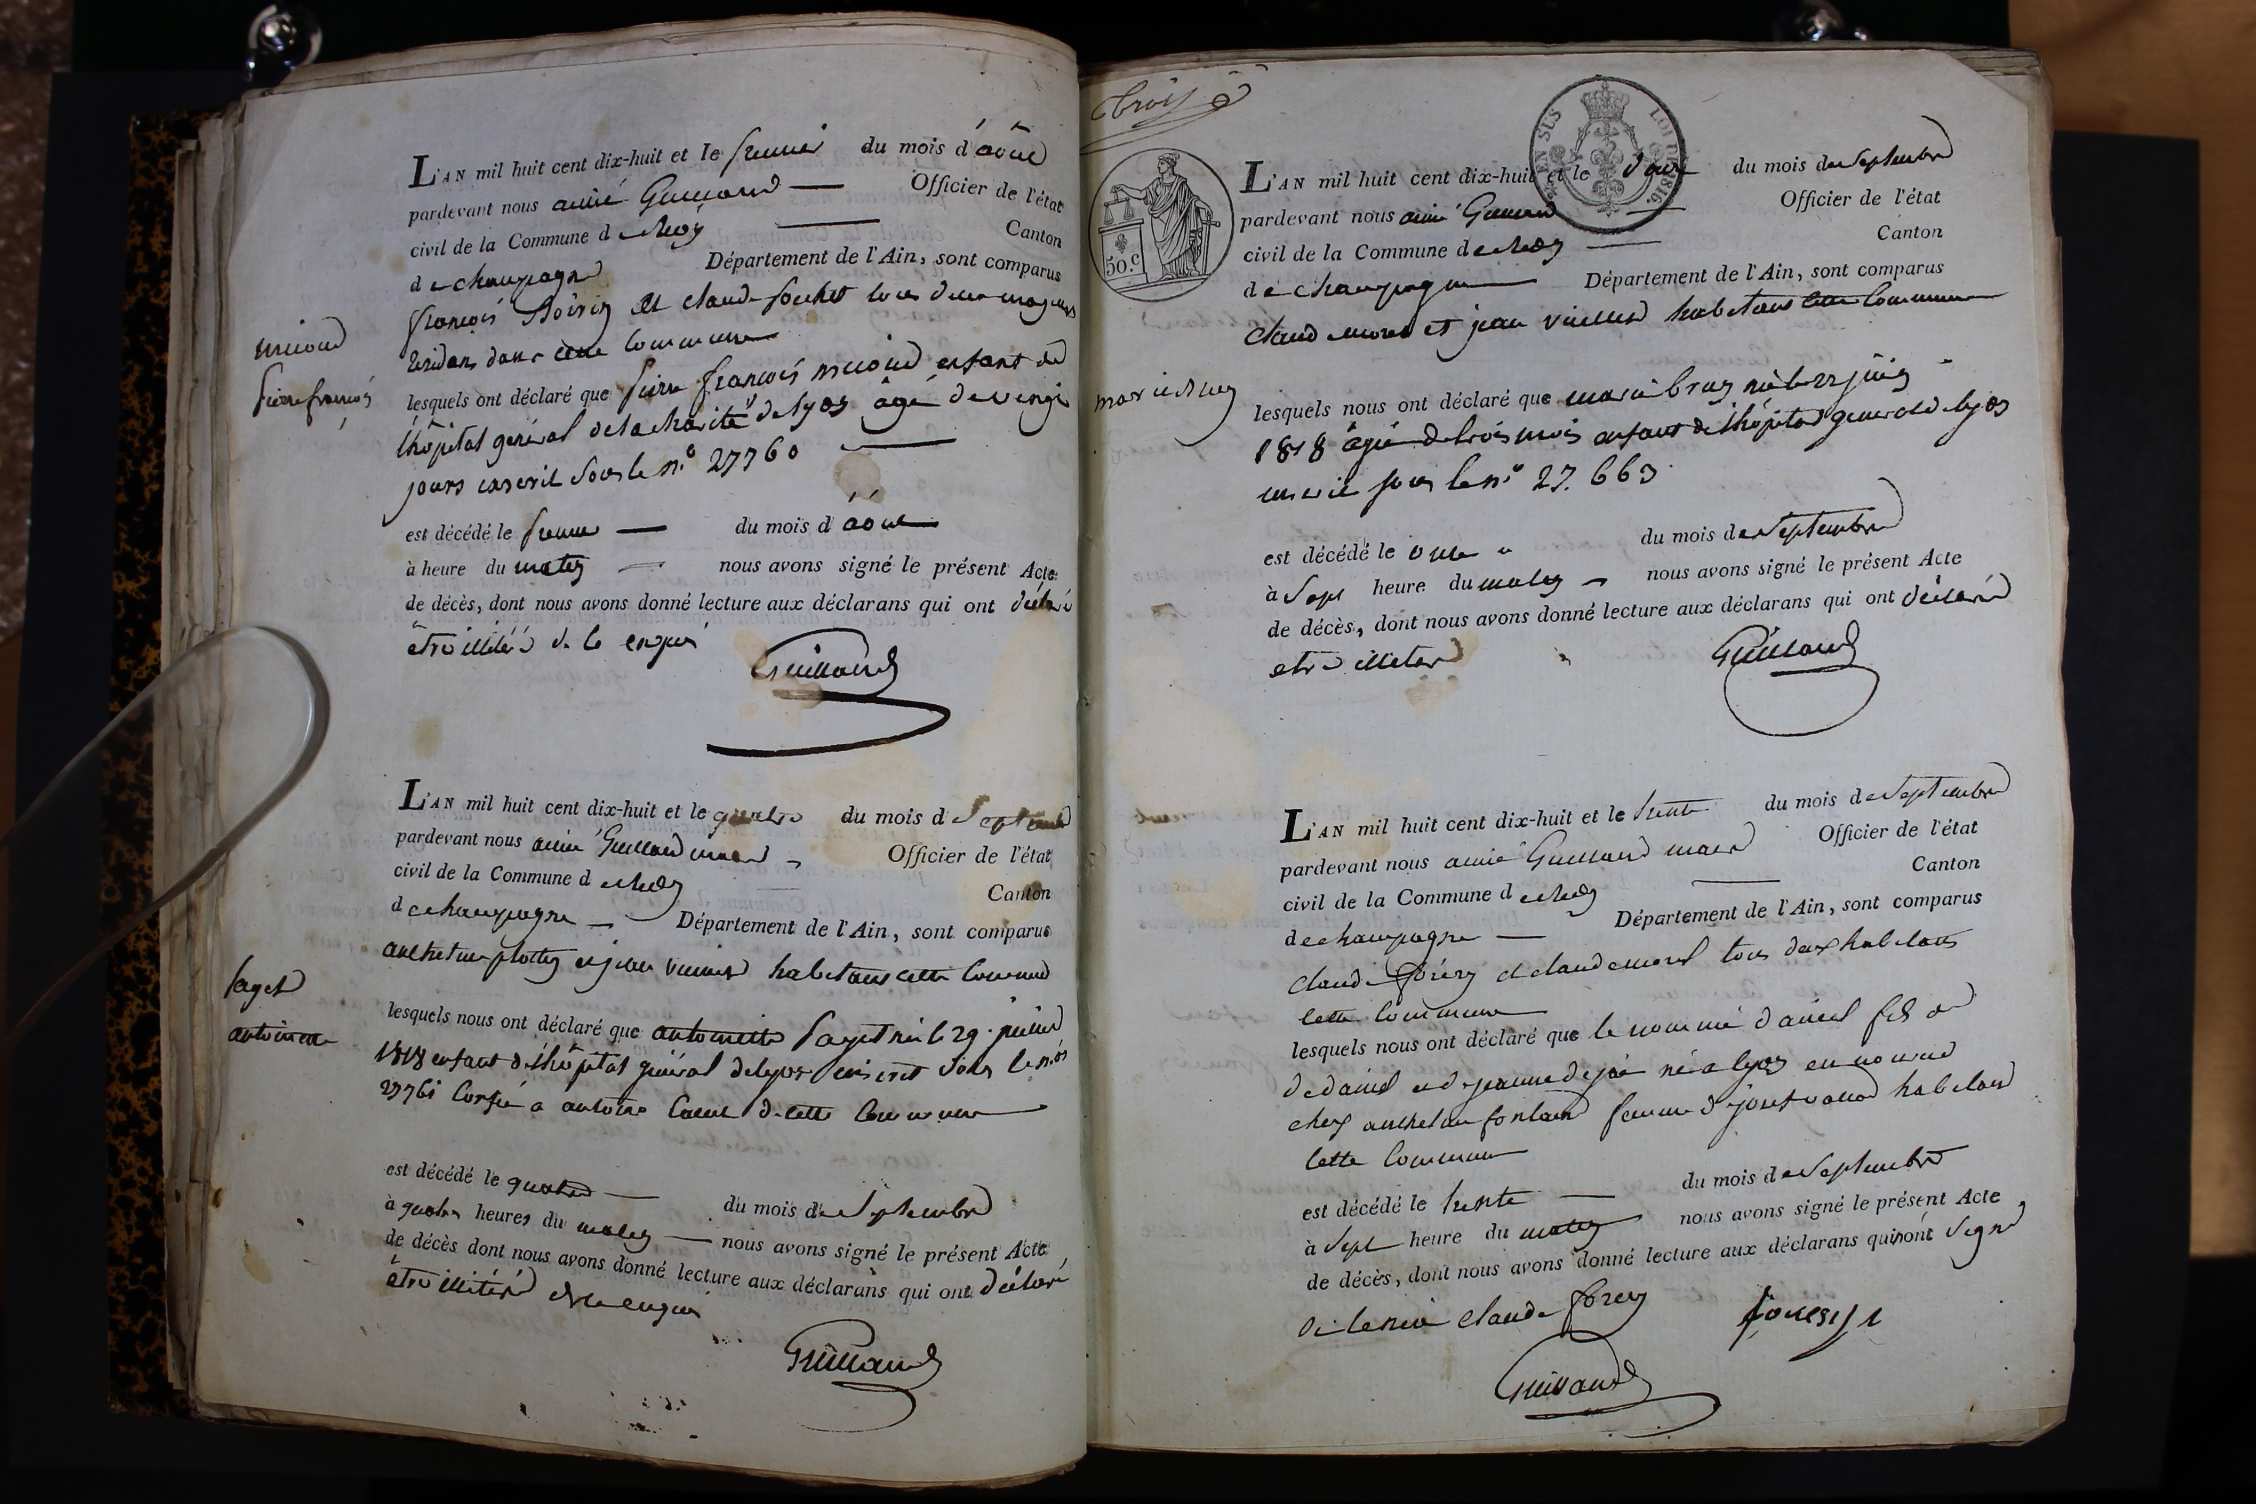 L'AN mil huit cent dix-huit et le premier du mois d'août
pardevant nous aimé Guillaud Officier de l'état
civil de la Commune d
Canton
de champagne Département de l'Ain, sont comparus
françois et claude tous deux majeurs
résidans dans cette Commune
micoud
pierre françois
lesquels ont déclaré que pierre françois micoud enfant de
l'hôpital général de la charité de lyon âgé de vingt
jours inscrit sous le n.° 27760
est décédé le premier du mois d'août
à heure du matin nous avons signé le présent Acte
de décès, dont nous avons donné lecture aux déclarans qui ont déclaré
être illiteré de ce enquis
Guillaud
L'AN mil huit cent dix-huit et le quatre du mois de Septembre
pardevant nous aimé Guillaud maire Officier de l'état
civil de la Commune d
Canton
de champagne Département de l'Ain, sont comparus
anthelme et jean habitans cette Commune
paget
antoinette
lesquels nous ont déclaré que antoinette paget née le 29 juillet
1818 enfant de l'hôpital général de lyon inscrit sous le n.os
27761 Confié a antoine de cette Commune
est décédé le quatre du mois de Septembre
à quatre heures du matin nous avons signé le présent Acte
de décès dont nous avons donné lecture aux déclarans qui ont déclaré
être illiteré de ce enquis
Guillaud
trois
EN SUS LOI DE 1816.
50.c
L'AN mil huit cent dix-huit et le du mois de Septembre
pardevant nous aimé Guillaud Officier de l'état
civil de la Commune d
Canton
de champagne Département de l'Ain, sont comparus
Claude morel et jean habitans cette Commune
marie Bruy
lesquels nous ont déclaré que marie bruy née le 22 juin
1818 âgée de trois mois enfant de l'hôpital general de lyon
inscrit sous le n.° 27.663
est décédé le onze du mois de Septembre
à Sept heure du matin nous avons signé le présent Acte
de décès, dont nous avons donné lecture aux déclarans qui ont déclaré
etre illiteré
Guillaud
L'AN mil huit cent dix-huit et le trente du mois de Septembre
pardevant nous aimé Guillaud maire Officier de l'état
civil de la Commune d
Canton
de champagne Département de l'Ain, sont comparus
Claude et claude morel tous deux habitans
cette Commune
lesquels nous ont déclaré que le nommé daniel fils
de daniel et de jeanne né a lyon en nourrice
chez anthelme fontaine femme de habitant
cette Commune
est décédé le trente du mois de Septembre
à Sept heure du matin nous avons signé le présent Acte
de décès, dont nous avons donné lecture aux déclarans qui ont Signé
Claude
Guillaud